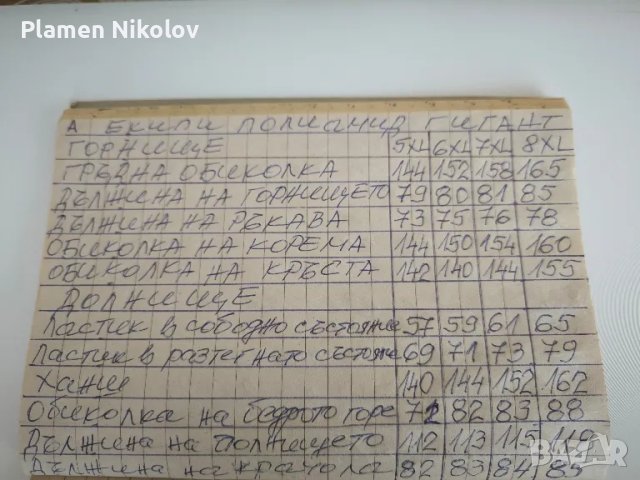 Plamen Nikolov
А ЕКИПИ ПОЛИАМИД ГИГАНТ
ГОРНИЩЕ 5XL 6XL 7XL 8XL
ГРЪДНА ОБИКОЛКА 144 152 158 165
ДЪЛЖИНА НА ГОРНИЩЕТО 79 80 81 85
ДЪЛЖИНА НА РЪКАВА 73 75 76 78
ОБИКОЛКА НА КОРЕМА 144 150 154 160
ОБИКОЛКА НА КРЪСТА 142 140 144 155
ДОЛНИЩЕ
Ластик в сободно състояние 57 59 61 65
Ластик в разтегнато състояне 69 71 73 79
Ханш 140 144 152 162
Обиколка на бедрото горе 72 82 83 88
Дължина на долнището 112 113 115
Дължина на крачола 82 83 84 85
BAZAR